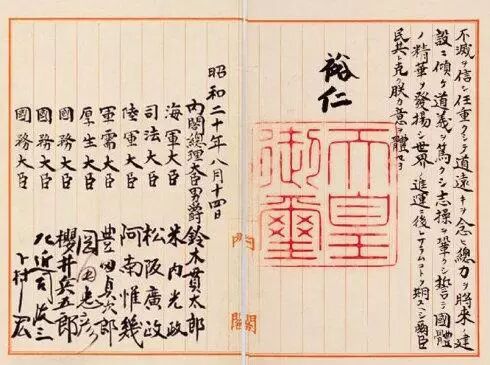 不滅ヲ信シ任重クシテ道遠キヲ念ヒ總力ヲ將來ノ建
設ニ傾ケ道義ヲ篤クシ志操ヲ鞏クシ誓テ國體
ノ精華ヲ發揚シ世界ノ進運ニ後レサラムコトヲ期スヘシ爾臣
民其レ克ク朕カ意ヲ體セヨ
裕仁
天皇
御璽
內閣
昭和二十年八月十四日
內閣總理大臣男爵 鈴木貫太郎
海軍大臣 米內光政
司法大臣 松阪廣政
陸軍大臣 阿南惟幾
軍需大臣 豐田貞次郎
厚生大臣 岡田忠彥
國務大臣 櫻井兵五郎
國務大臣 左近司政三
國務大臣 下村宏